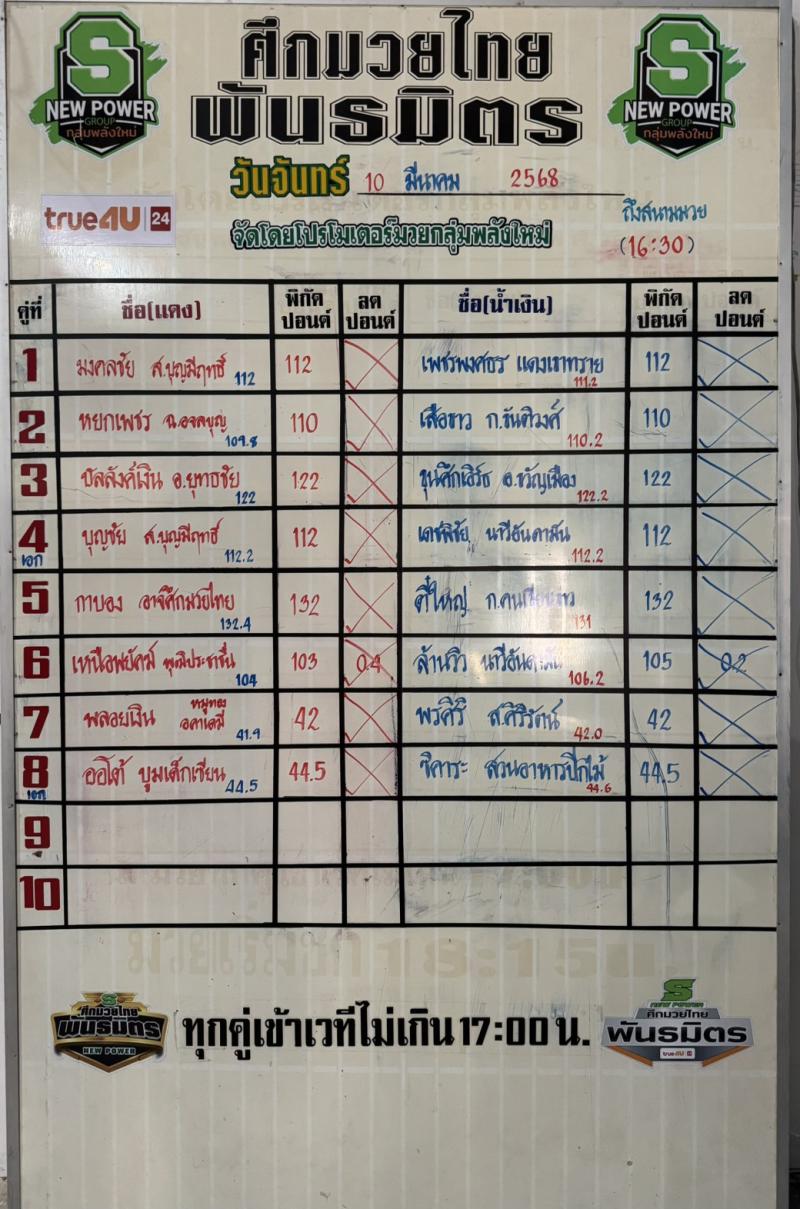 ศึกมวยไทย
พันธมิตร
S
NEW POWER
GROUP
กลุ่มพลังใหม่
S
NEW POWER
GROUP
กลุ่มพลังใหม่
วันจันทร์ 10 มีนาคม 2568
true4U 24
จัดโดยโปรโมเตอร์มวยกลุ่มพลังใหม่
ถึงสนามมวย
(16:30)
คู่ที่ ชื่อ(แดง) พิกัดปอนด์ ลดปอนด์ ชื่อ(น้ำเงิน) พิกัดปอนด์ ลดปอนด์
1 มงคลชัย ส.บุญมีฤทธิ์ 112 112 เพชรพงศธร แดงเขาทราย 111.2 112
2 หยกเพชร ฉ.อจลบุญ 109.8 110 เสือขาว ก.ขันติวงศ์ 110.2 110
3 บัลลังค์เงิน อ.ยุทธชัย 122 122 ขุนศึกเอิร์ธ อ.ขวัญเมือง 122.2 122
4 เอก บุญชัย ส.บุญมีฤทธิ์ 112.2 112 เดชพิชัย นาวีอันดามัน 112.2 112
5 กาบอง อาจศึกมวยไทย 132.4 132 ตี๋ใหญ่ 131 132
6 เหนือพยัคฆ์ วุฒิประชาชื่น 104 103 0.4 ล้านวิว นาวีอันดามัน 106.2 105 0.2
7 พลอยเงิน หมูทอง อคาเดมี่ 41.9 42 พรศิริ ส.ศิริรัตน์ 42.0 42
8 เอก ออโต้ บูมเด็กเซียน 44.5 44.5 ชิคาระ สวนอาหารปีกไม้ 44.6 44.5
9
10
S
ศึกมวยไทย
พันธมิตร
NEW POWER
ทุกคู่เข้าเวทีไม่เกิน 17:00 น.
S
NEW POWER
ศึกมวยไทย
พันธมิตร
true4U 24